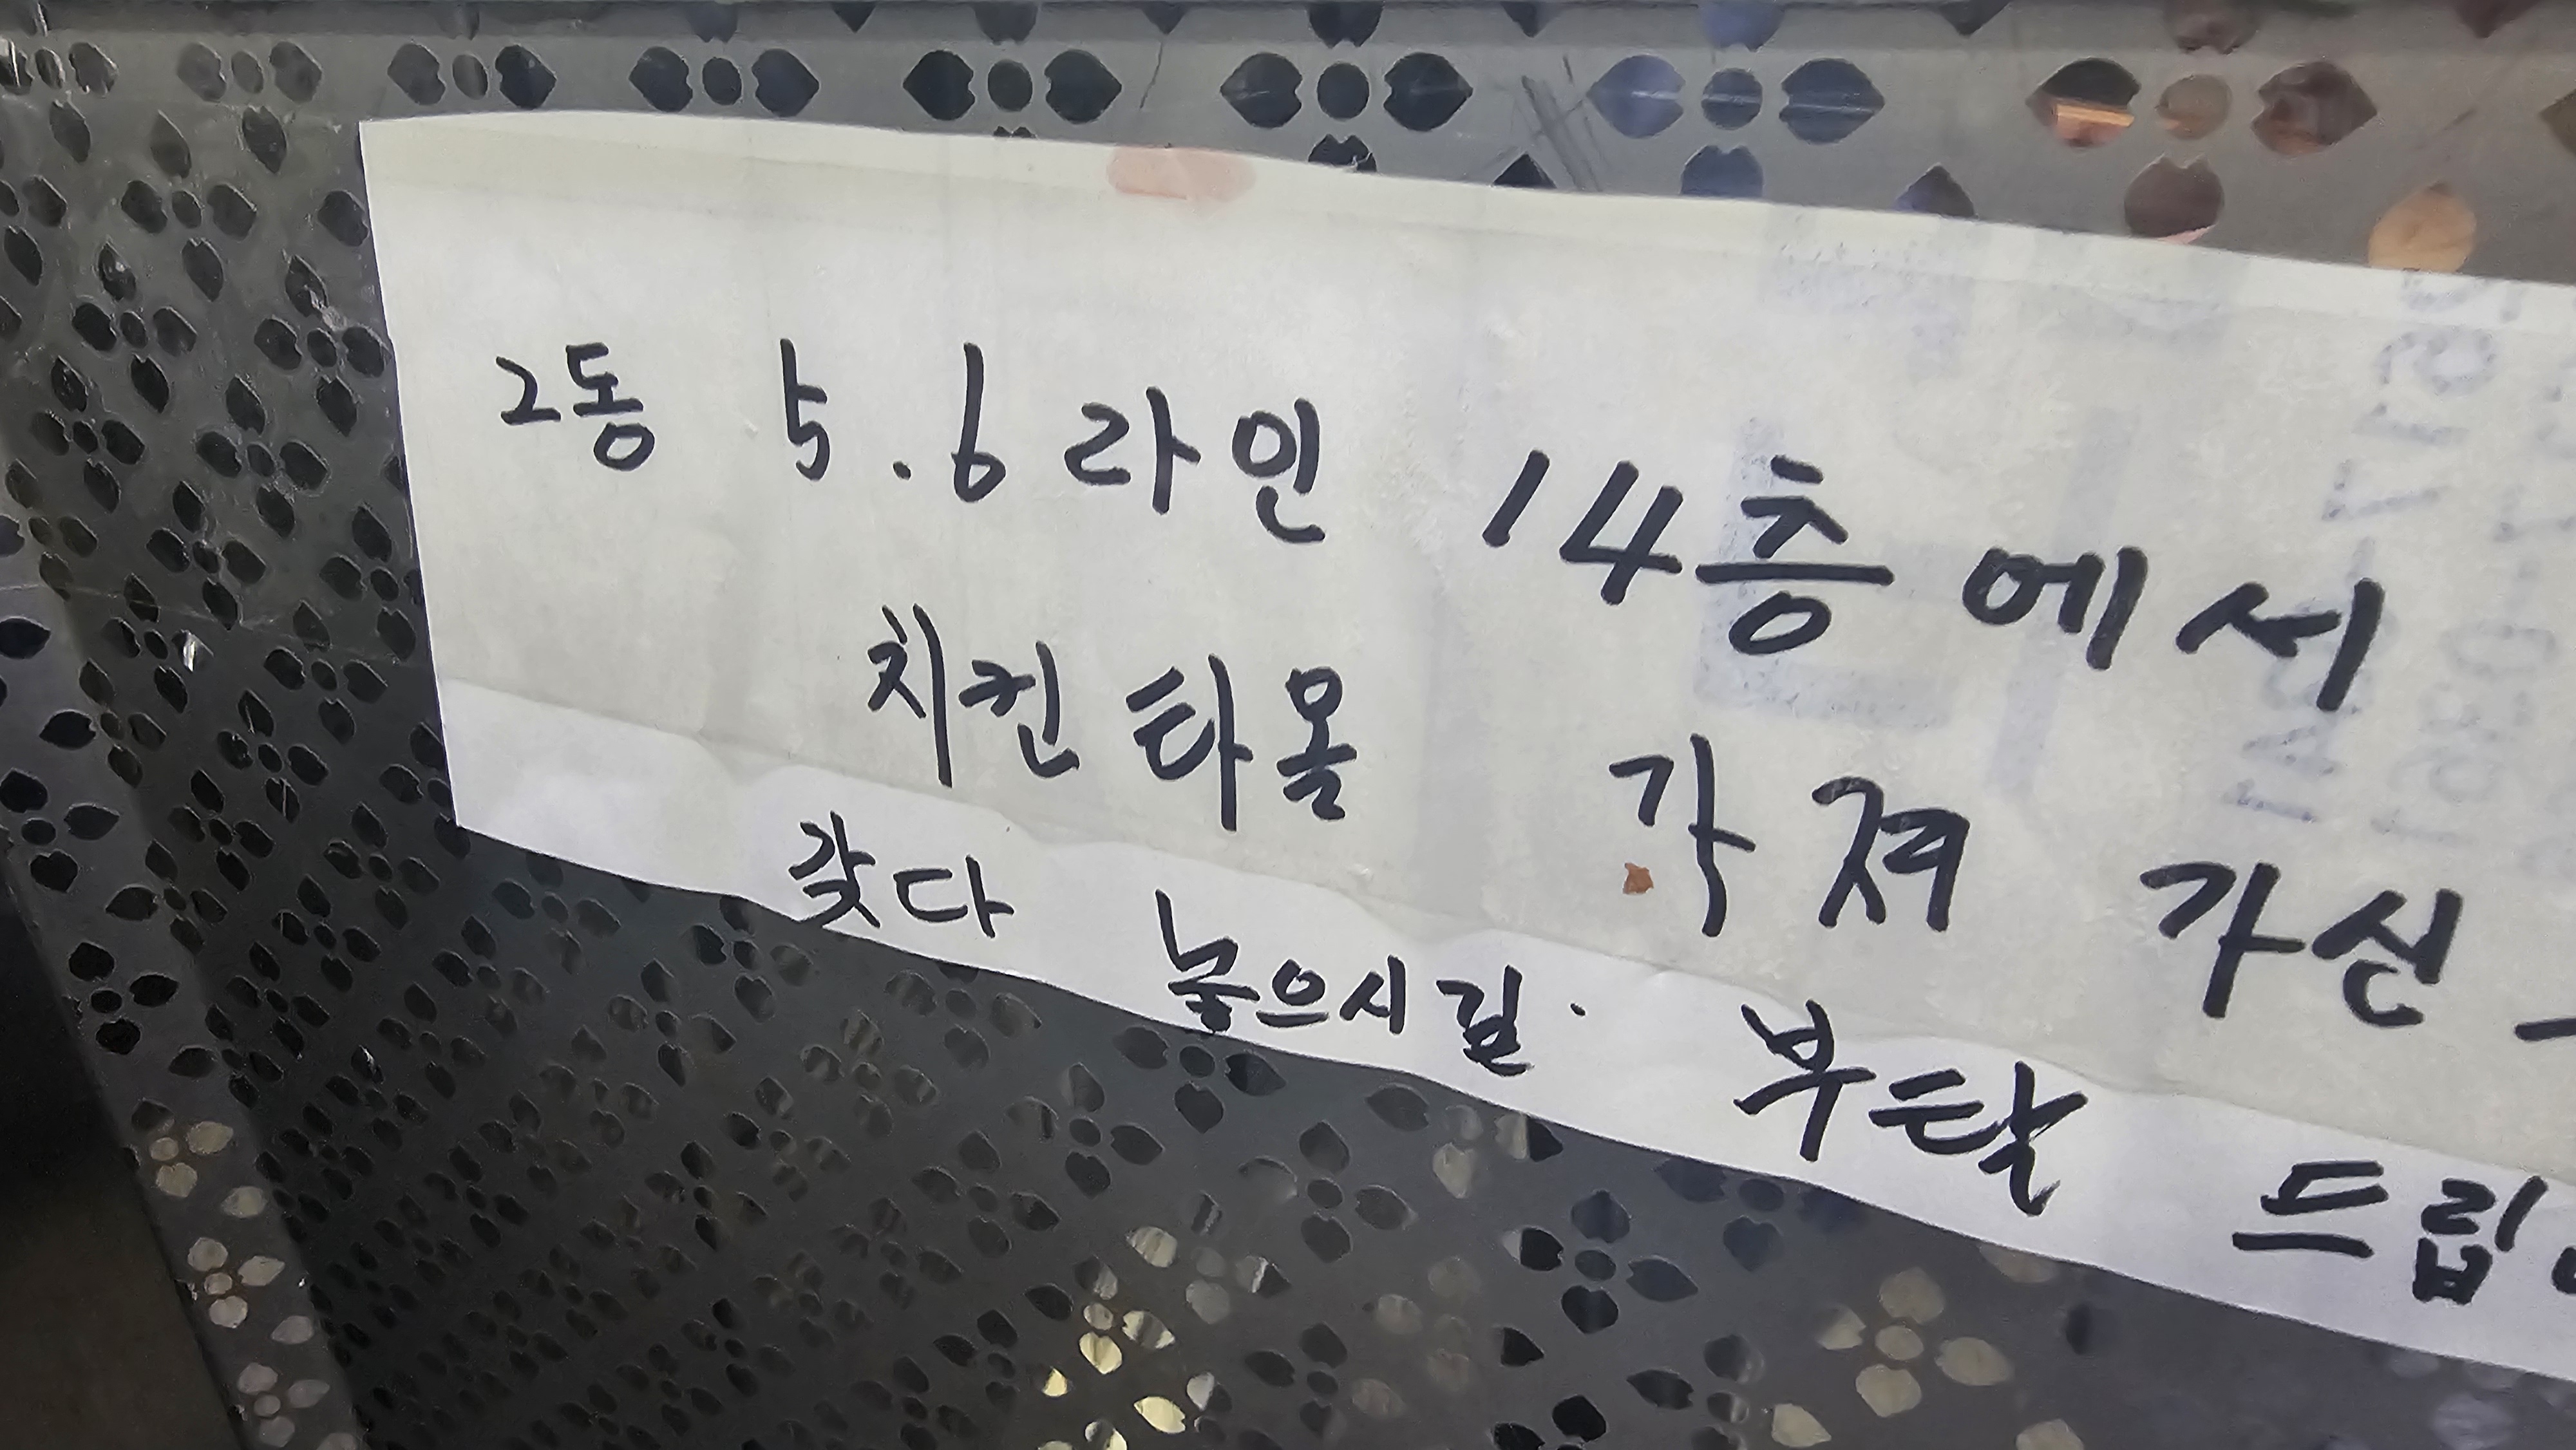 2동 5.6라인 14층에서
치킨타올 가져 가신
갖다 놓으시길. 부탁 드립